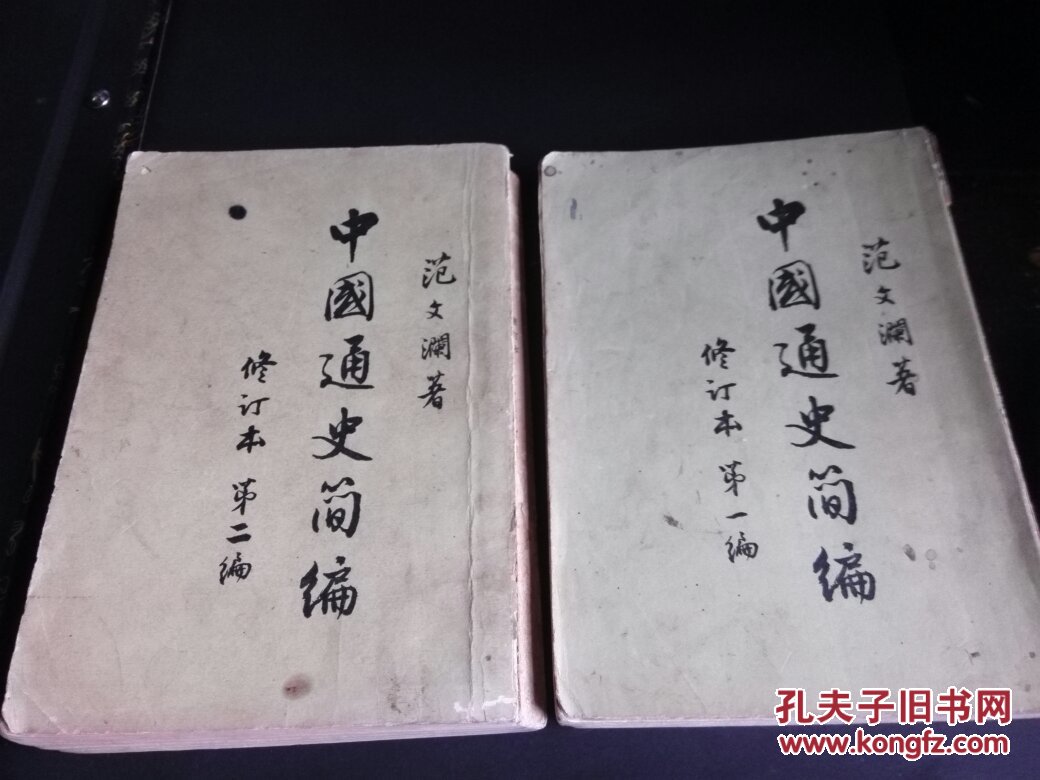 范文瀾著
中國通史简编
修订本 第二编
范文瀾著
中國通史简编
修订本 第一编
孔夫子旧书网
www.kongfz.com